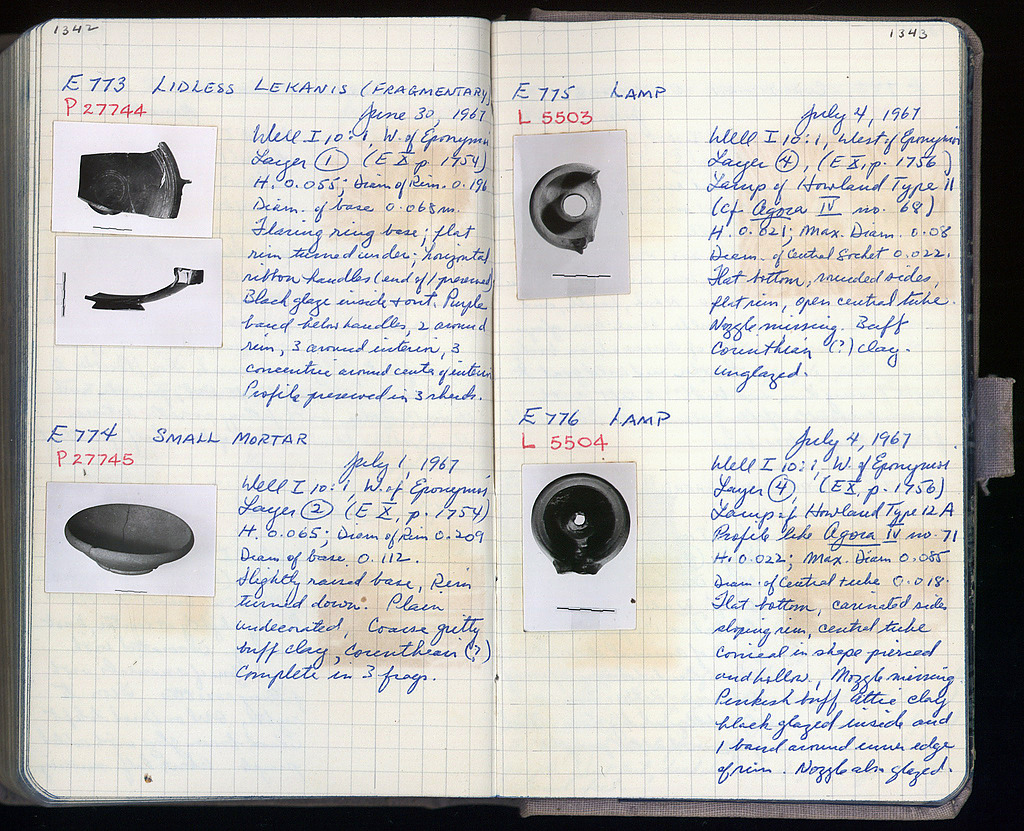 1342
E 773 LIDLESS LEKANIS (FRAGMENTARY)
P 27744
June 30, 1967
Well I 10:1, W. of Eponymi
Layer 1 (E X, p. 1754)
H. 0.055; Diam of Rim. 0.196
Diam. of base 0.068 m.
Flaring ring base; flat
rim turned under; horizontal
ribbon handles (end of 1 preserved)
Black glaze inside & out. Purple
band below handles, 2 around
rim, 3 around interior, 3
concentric around center of interior
Profile preserved in 3 sherds.
E 774 SMALL MORTAR
P 27745
July 1, 1967
Well I 10:1, W. of Eponymi
Layer 2 (E X, p. 1754)
H. 0.065; Diam of Rim 0.209
Diam of base 0.112.
Slightly raised base, Rim
turned down. Plain
undecorated, Coarse gritty
buff clay, Corinthian (?)
Complete in 3 frags.
1343
E 775 LAMP
L 5503
July 4, 1967
Well I 10:1, West of Eponymi
Layer 4, (E X, p. 1756)
Lamp of Howland Type 11
(cf Agora IV no. 68)
H. 0.021; Max. Diam. 0.08
Diam. of Central Socket 0.022.
Flat bottom, rounded sides,
flat rim, open central tube.
Nozzle missing. Buff
Corinthian (?) clay.
unglazed.
E 776 LAMP
L 5504
July 4, 1967
Well I 10:1, W. of Eponymi
Layer 4, (E X, p. 1756)
Lamp of Howland Type 12 A
Profile like Agora IV no. 71
H. 0.022; Max. Diam 0.085
Diam. of Central tube 0.018.
Flat bottom, carinated sides
sloping rim, central tube
conical in shape pierced
and hollow, Nozzle missing
Pinkish buff Attic clay
black glazed inside and
1 band around inner edge
of rim. Nozzle also glazed.